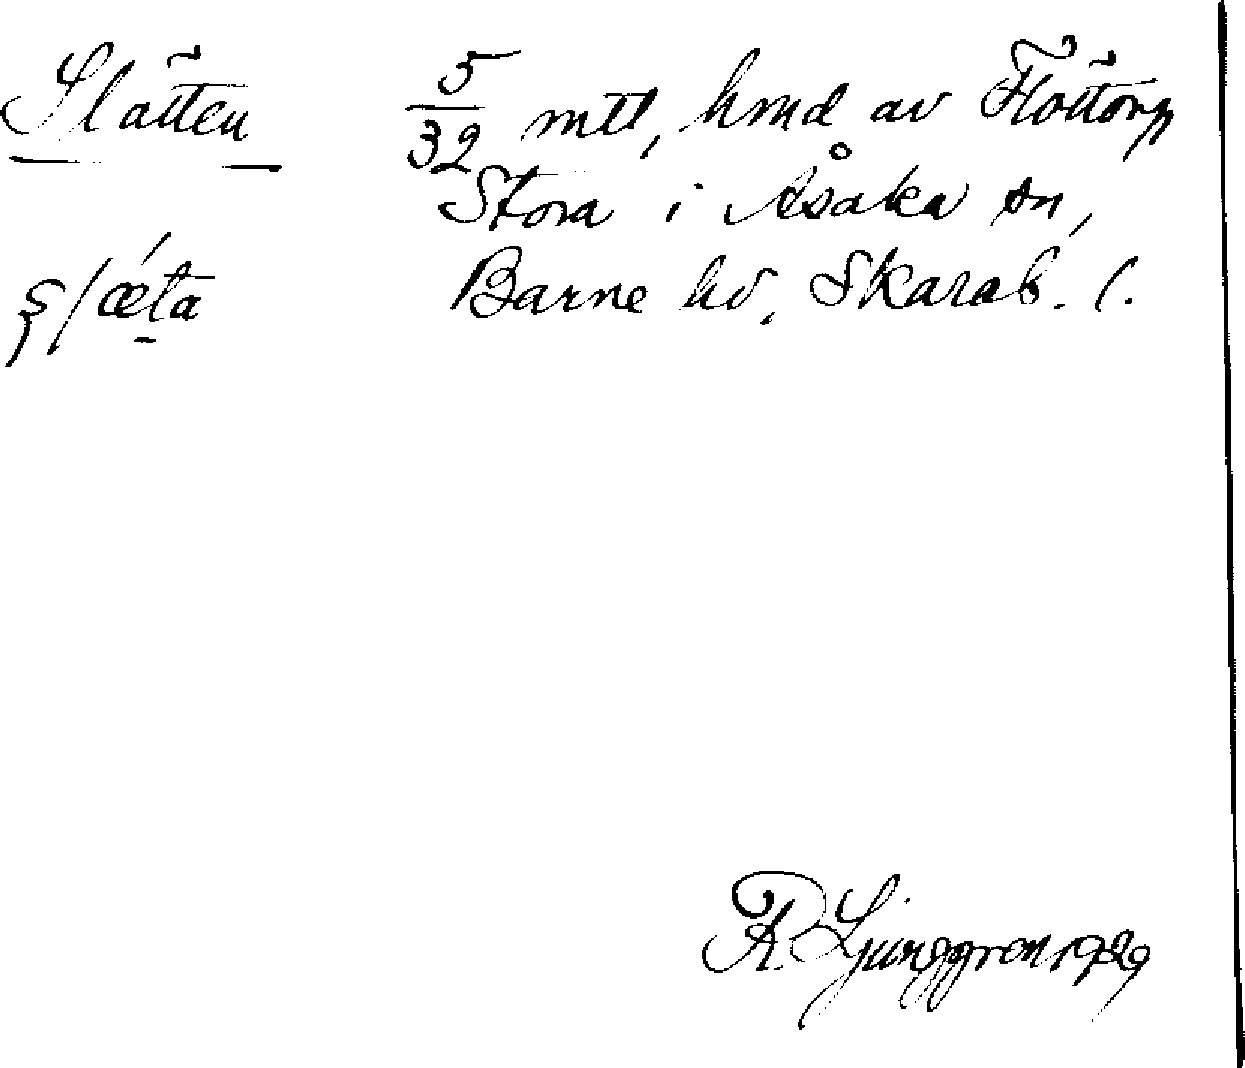 Slätten
5/32 mtl, hmd av Flottorp
Stora i Åsaka sn,
Barne hd, Skarab. l.
s/ǽta
R. Ljunggren 1929